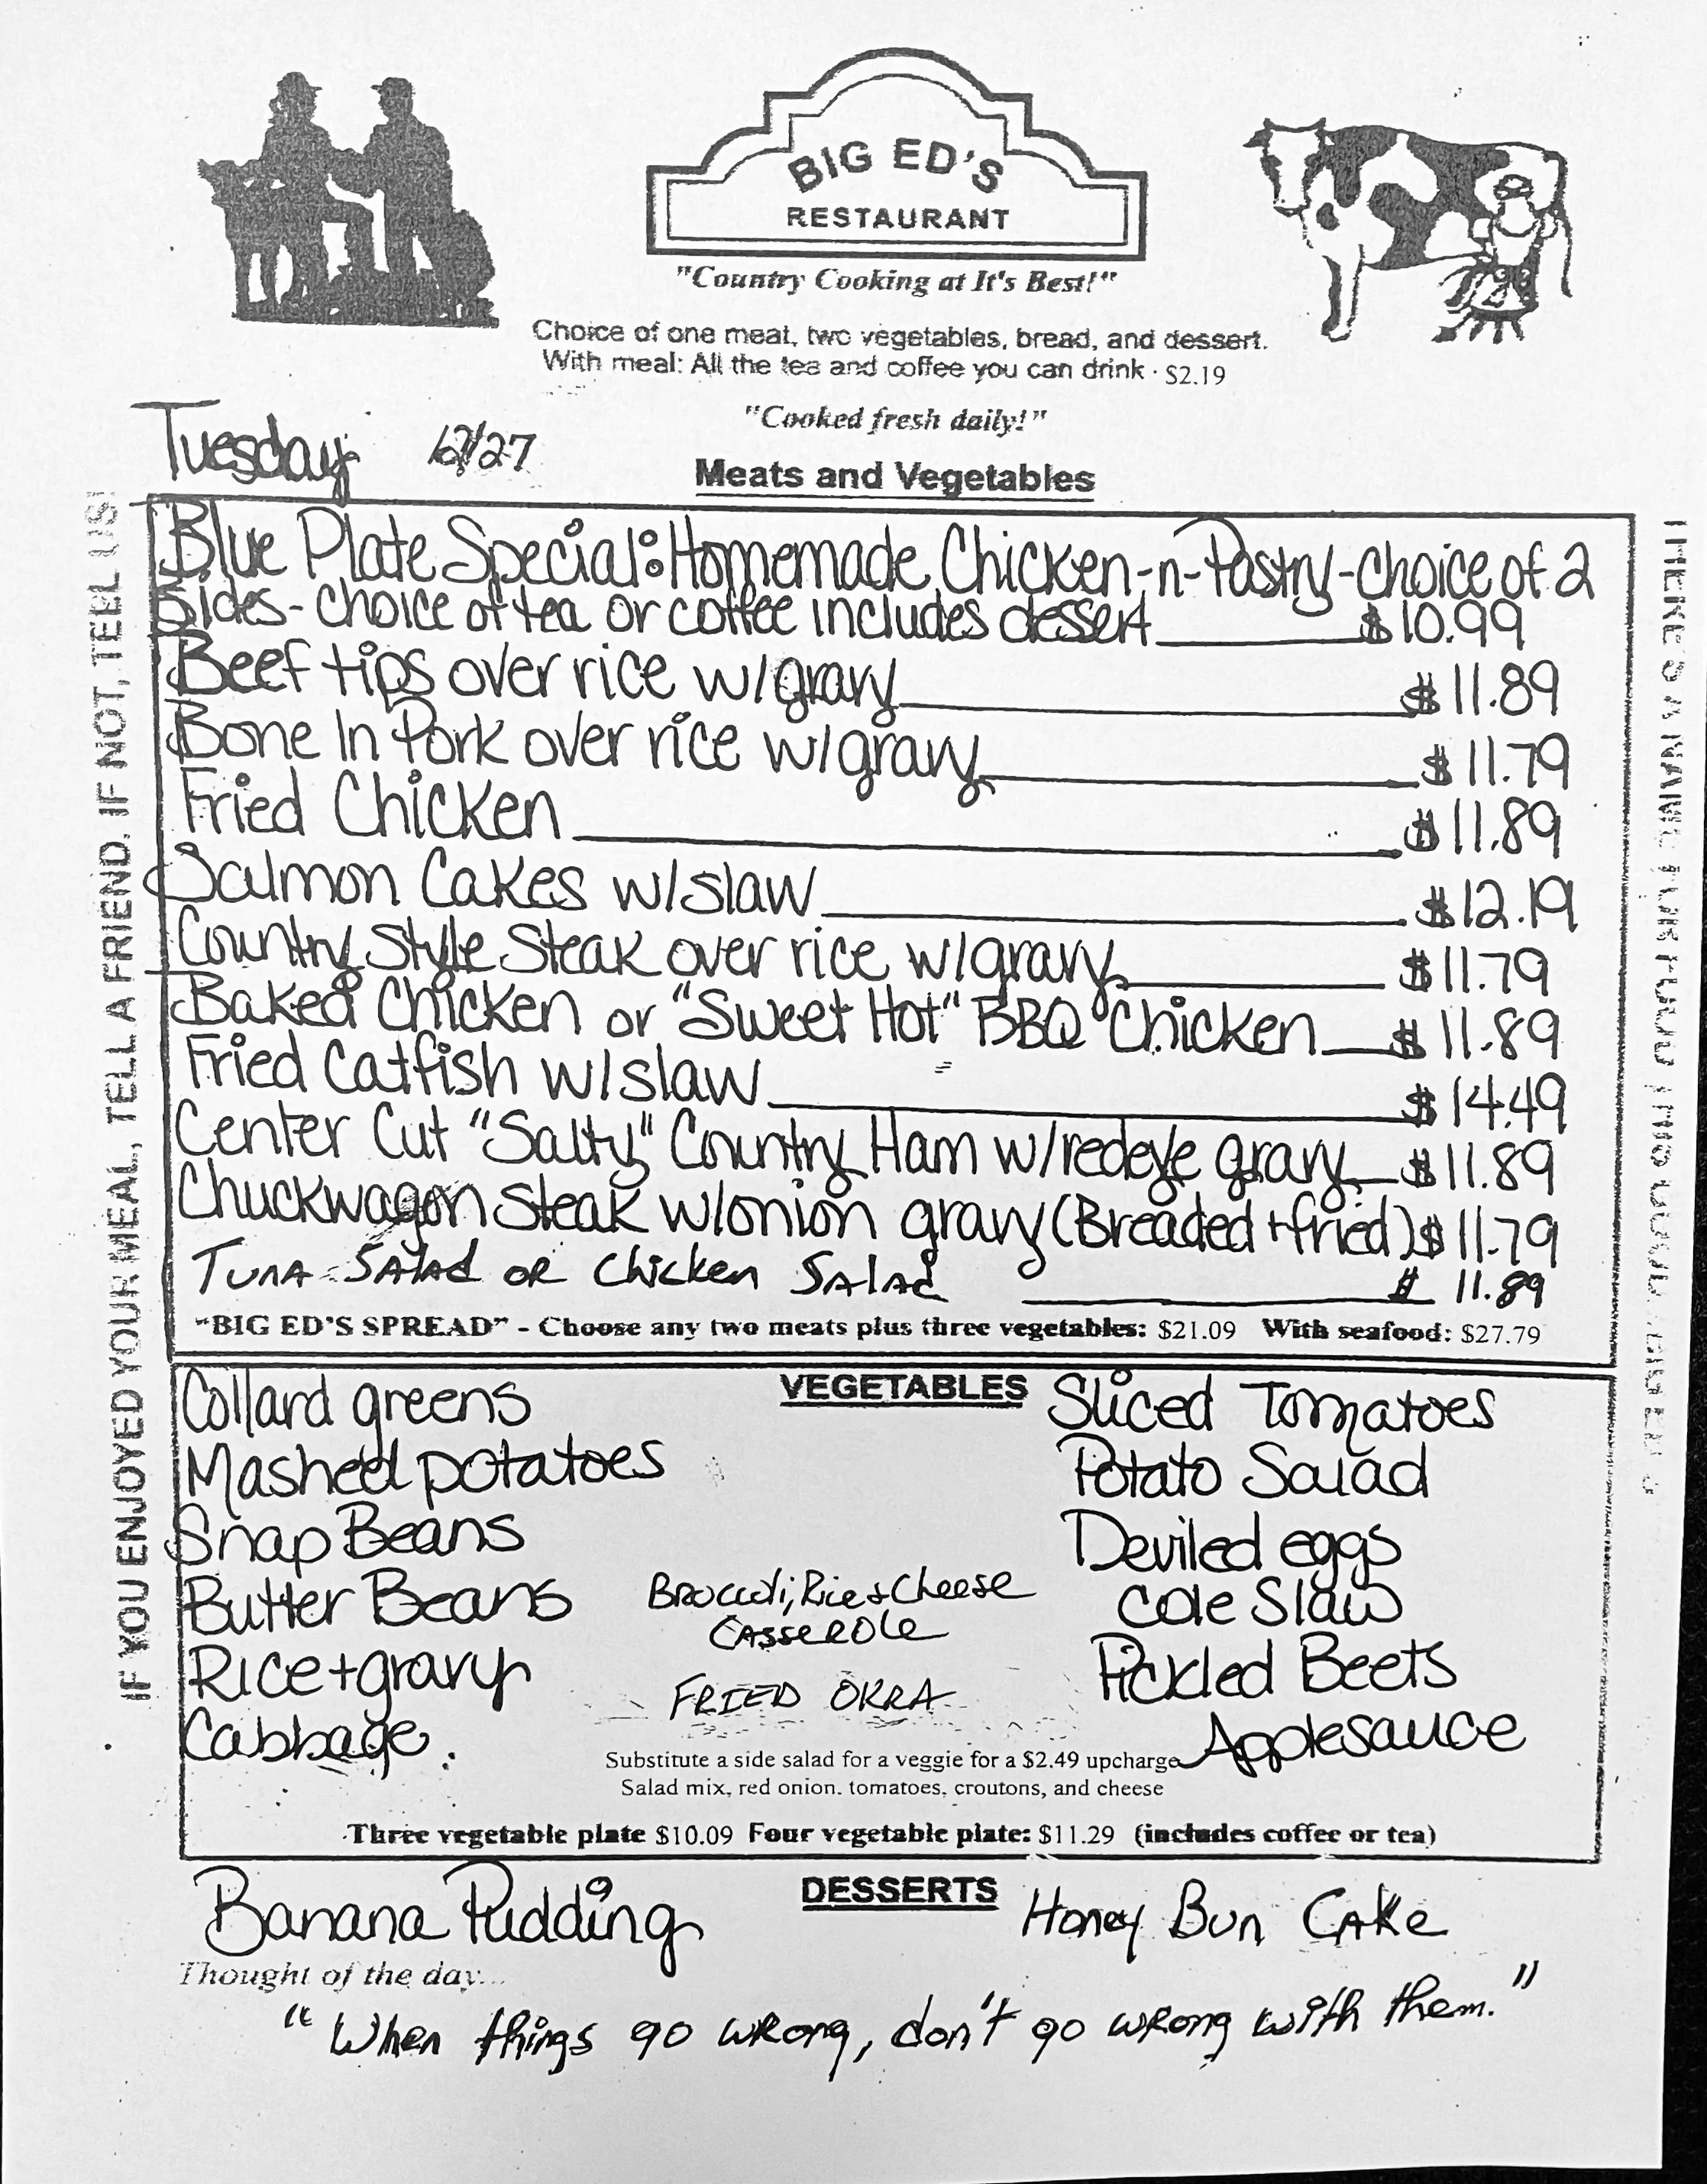 BIG ED'S
RESTAURANT
"Country Cooking at It's Best!"
Choice of one meat, two vegetables, bread, and dessert.
With meal: All the tea and coffee you can drink · $2.19
"Cooked fresh daily!"
Tuesday 12/27
Meats and Vegetables
Blue Plate Special: Homemade Chicken-n-Pastry-choice of 2
Sides-choice of tea or coffee includes dessert $10.99
Beef tips over rice w/gravy $11.89
Bone In Pork over rice w/gravy $11.79
Fried Chicken $11.89
Salmon Cakes w/slaw $12.19
Country Style Steak over rice w/gravy $11.79
Baked Chicken or "Sweet Hot" BBQ Chicken $11.89
Fried Catfish w/slaw $14.49
Center Cut "Salty" Country Ham w/redeye gravy $11.89
Chuckwagon Steak w/onion gravy (Breaded + fried) $11.79
Tuna Salad or Chicken Salad $11.89
"BIG ED'S SPREAD" - Choose any two meats plus three vegetables: $21.09 With seafood: $27.79
VEGETABLES
Collard greens
Mashed potatoes
Snap Beans
Butter Beans
Rice + gravy
Cabbage
Broccoli, Rice + Cheese
Casserole
FRIED OKRA
Sliced Tomatoes
Potato Salad
Deviled eggs
Cole Slaw
Pickled Beets
Applesauce
Substitute a side salad for a veggie for a $2.49 upcharge
Salad mix, red onion, tomatoes, croutons, and cheese
Three vegetable plate $10.09 Four vegetable plate: $11.29 (includes coffee or tea)
DESSERTS
Banana Pudding
Honey Bun Cake
Thought of the day...
"When things go wrong, don't go wrong with them."
IF YOU ENJOYED YOUR MEAL, TELL A FRIEND. IF NOT, TELL US!
THERE'S A NAME FOR FOOD THIS GOOD